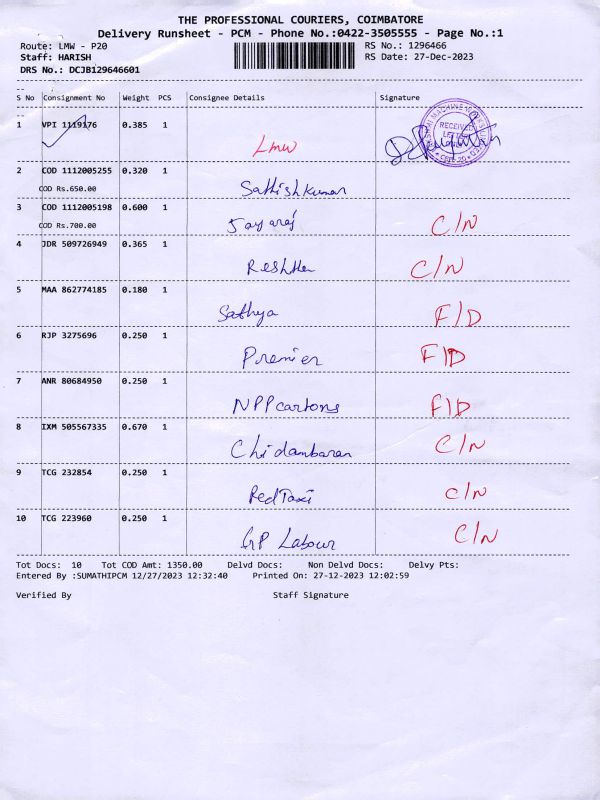 THE PROFESSIONAL COURIERS, COIMBATORE
Delivery Runsheet - PCM - Phone No.:0422-3505555 - Page No.:1
Route: LMW - P20 RS No.: 1296466
Staff: HARISH RS Date: 27-Dec-2023
DRS No.: DCJB129646601
S No Consignment No Weight PCS Consignee Details Signature
1 VPI 1119176 0.385 1
LMW
RECEIVED
2 COD 1112005255 0.320 1
COD Rs.650.00 Sathishkumar
3 COD 1112005198 0.600 1
COD Rs.700.00 Jayaraj C/N
4 JDR 509726949 0.365 1
C/N
5 MAA 862774185 0.180 1
Sathya F/D
6 RJP 3275696 0.250 1
Premier F/D
7 ANR 80684950 0.250 1
NPP cartons F/D
8 IXM 505567335 0.670 1
Chidambaran C/N
9 TCG 232854 0.250 1
Red Taxi C/N
10 TCG 223960 0.250 1
GP Labour C/N
Tot Docs: 10 Tot COD Amt: 1350.00 Delvd Docs: Non Delvd Docs: Delvy Pts:
Entered By :SUMATHIPCM 12/27/2023 12:32:40 Printed On: 27-12-2023 12:02:59
Verified By Staff Signature